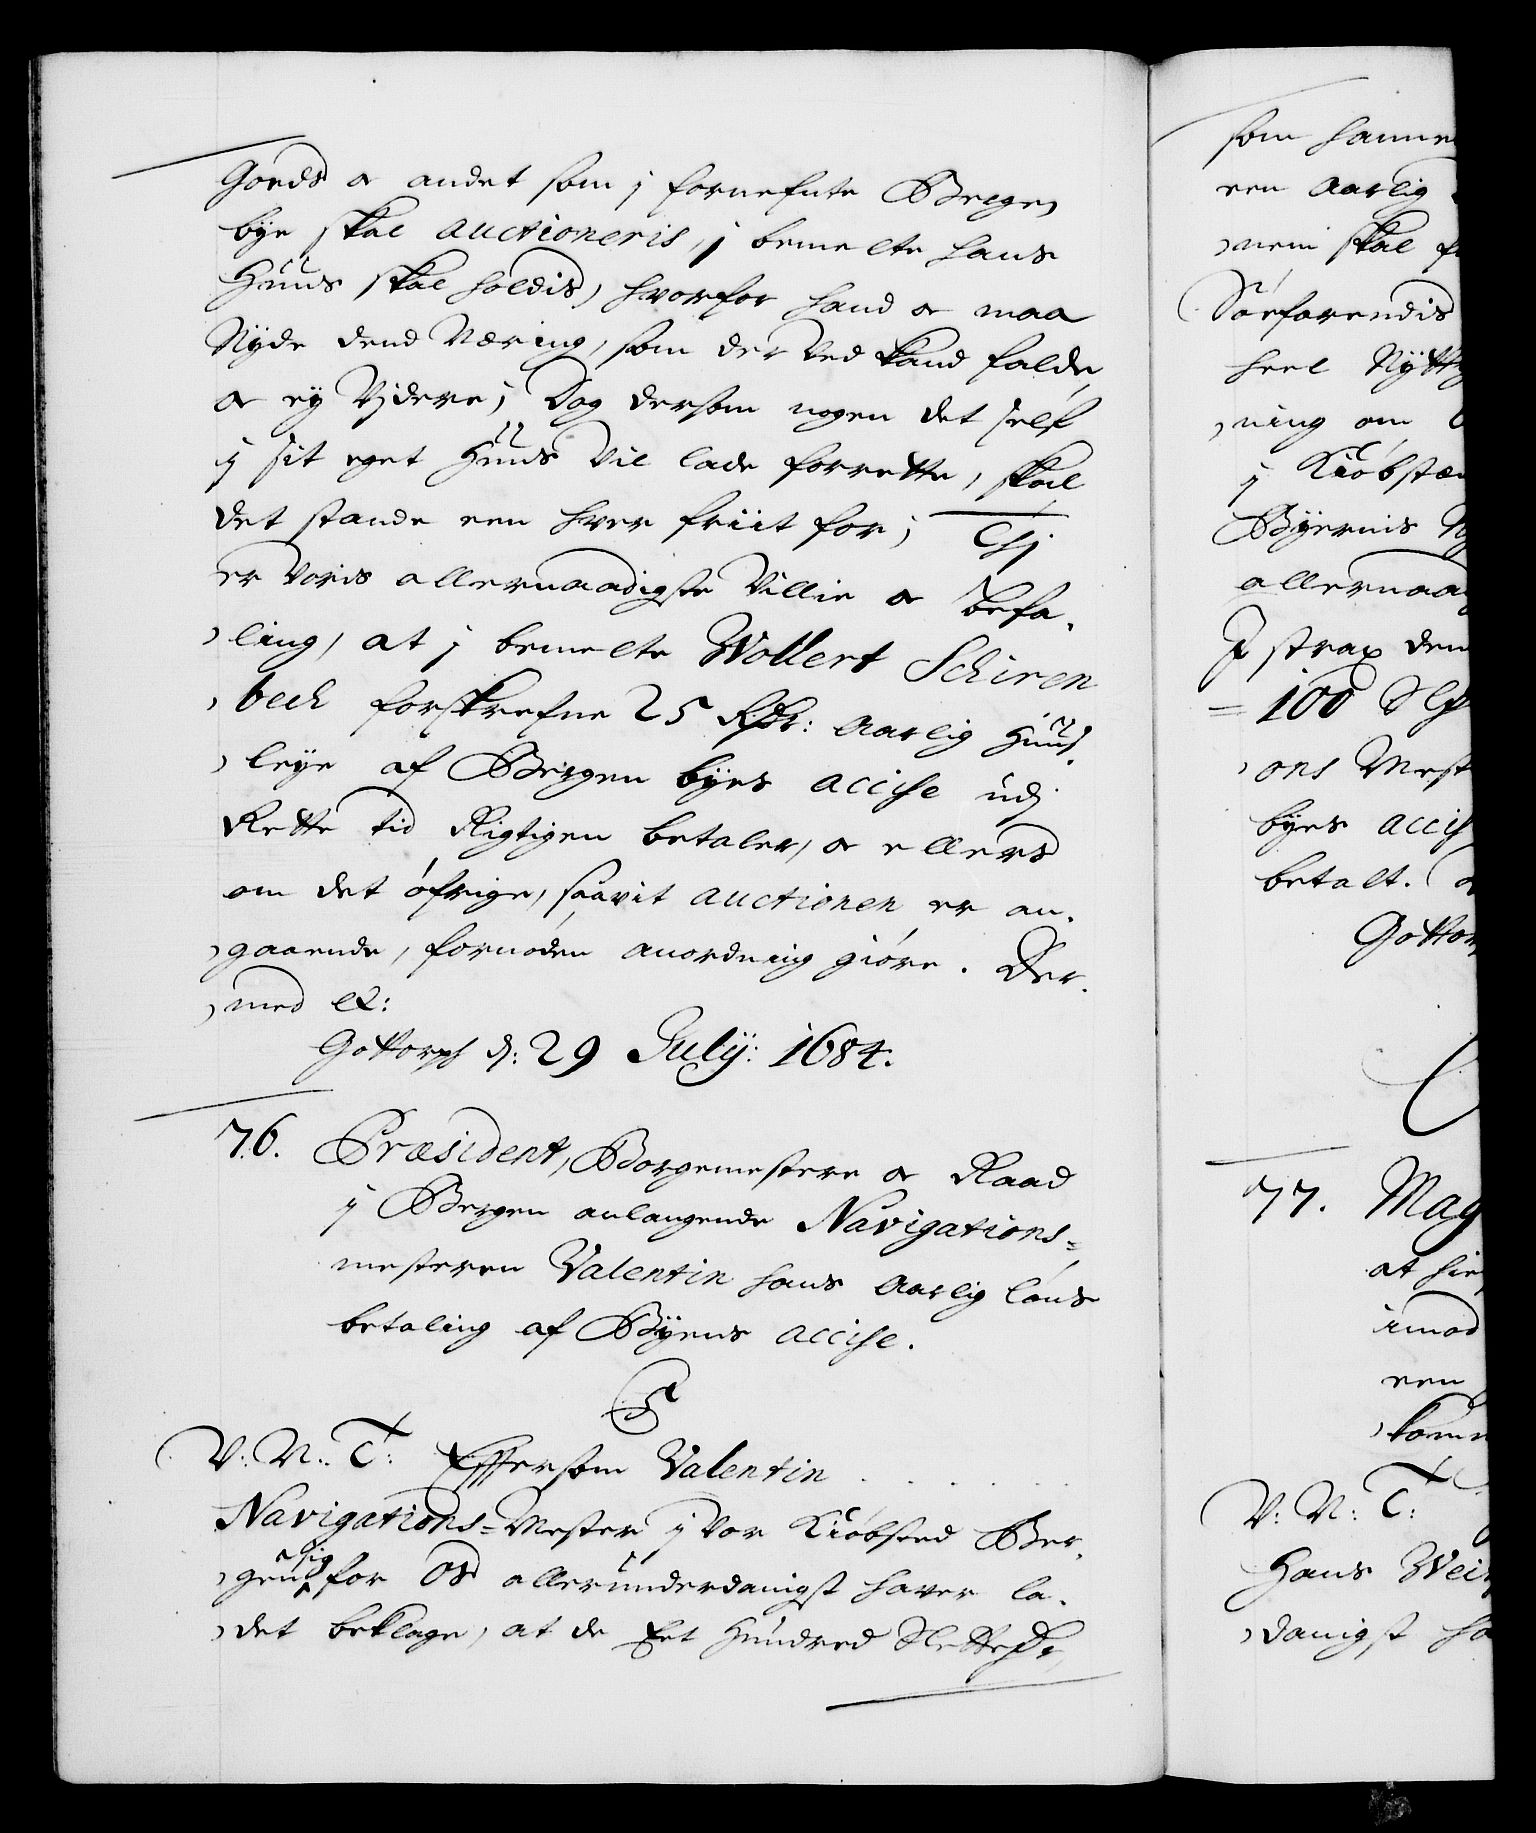 Goeds oc andet som i fornefnte Bergen
bye skal auctioneris, i bemelte hans
Huus skal holdis, hvorfor hand oc maa
Nyde dend Næring, som der ved kand falde,
oc ey Vjdere; Dog dersom nogen det self
ij sit eget Huus vil lade forrette, skal
det stande een hver friit for; Thj
er voris allernaadigste Villie oc Befa-
ling, at i bemelte Wollert Schiren
beck forskrefne 25 Rdr: aarlig Huus-
leye af Bergen byes accise udj
Rette tid Rigtigen betaler, oc ellers
om det öfrige, saavit auctionen er an-
gaaende, fornöden anordning giöre. Der-
med etc:
Gottorph d: 29 Julij: 1684.
76. Præsident, Borgemestere oc Raad
ij Bergen anlangende Navigations=
mesteren Valentin hans aarlig löns
betaling af Byens accise.
C5
V: N: T: Eftersom Valentin . . . .
Navigations=Mester ij vor Kiöbsted Ber-
gen sig for Os allerunderdanigst haver la-
det beklage, at de Eet Hundred Slettedr,
som hanne
een aarlig
nem skal f
Söefarendis
heel Nytt
ning om
ij Kiöbstæ
Byernis
allernaa
I strax den
= 100 Slet
ons Mest
byes accis
betalt.
Gottor
77. Mag
at hie
imod
een
komm
V: N: T:
Hans Wei
danigst ha